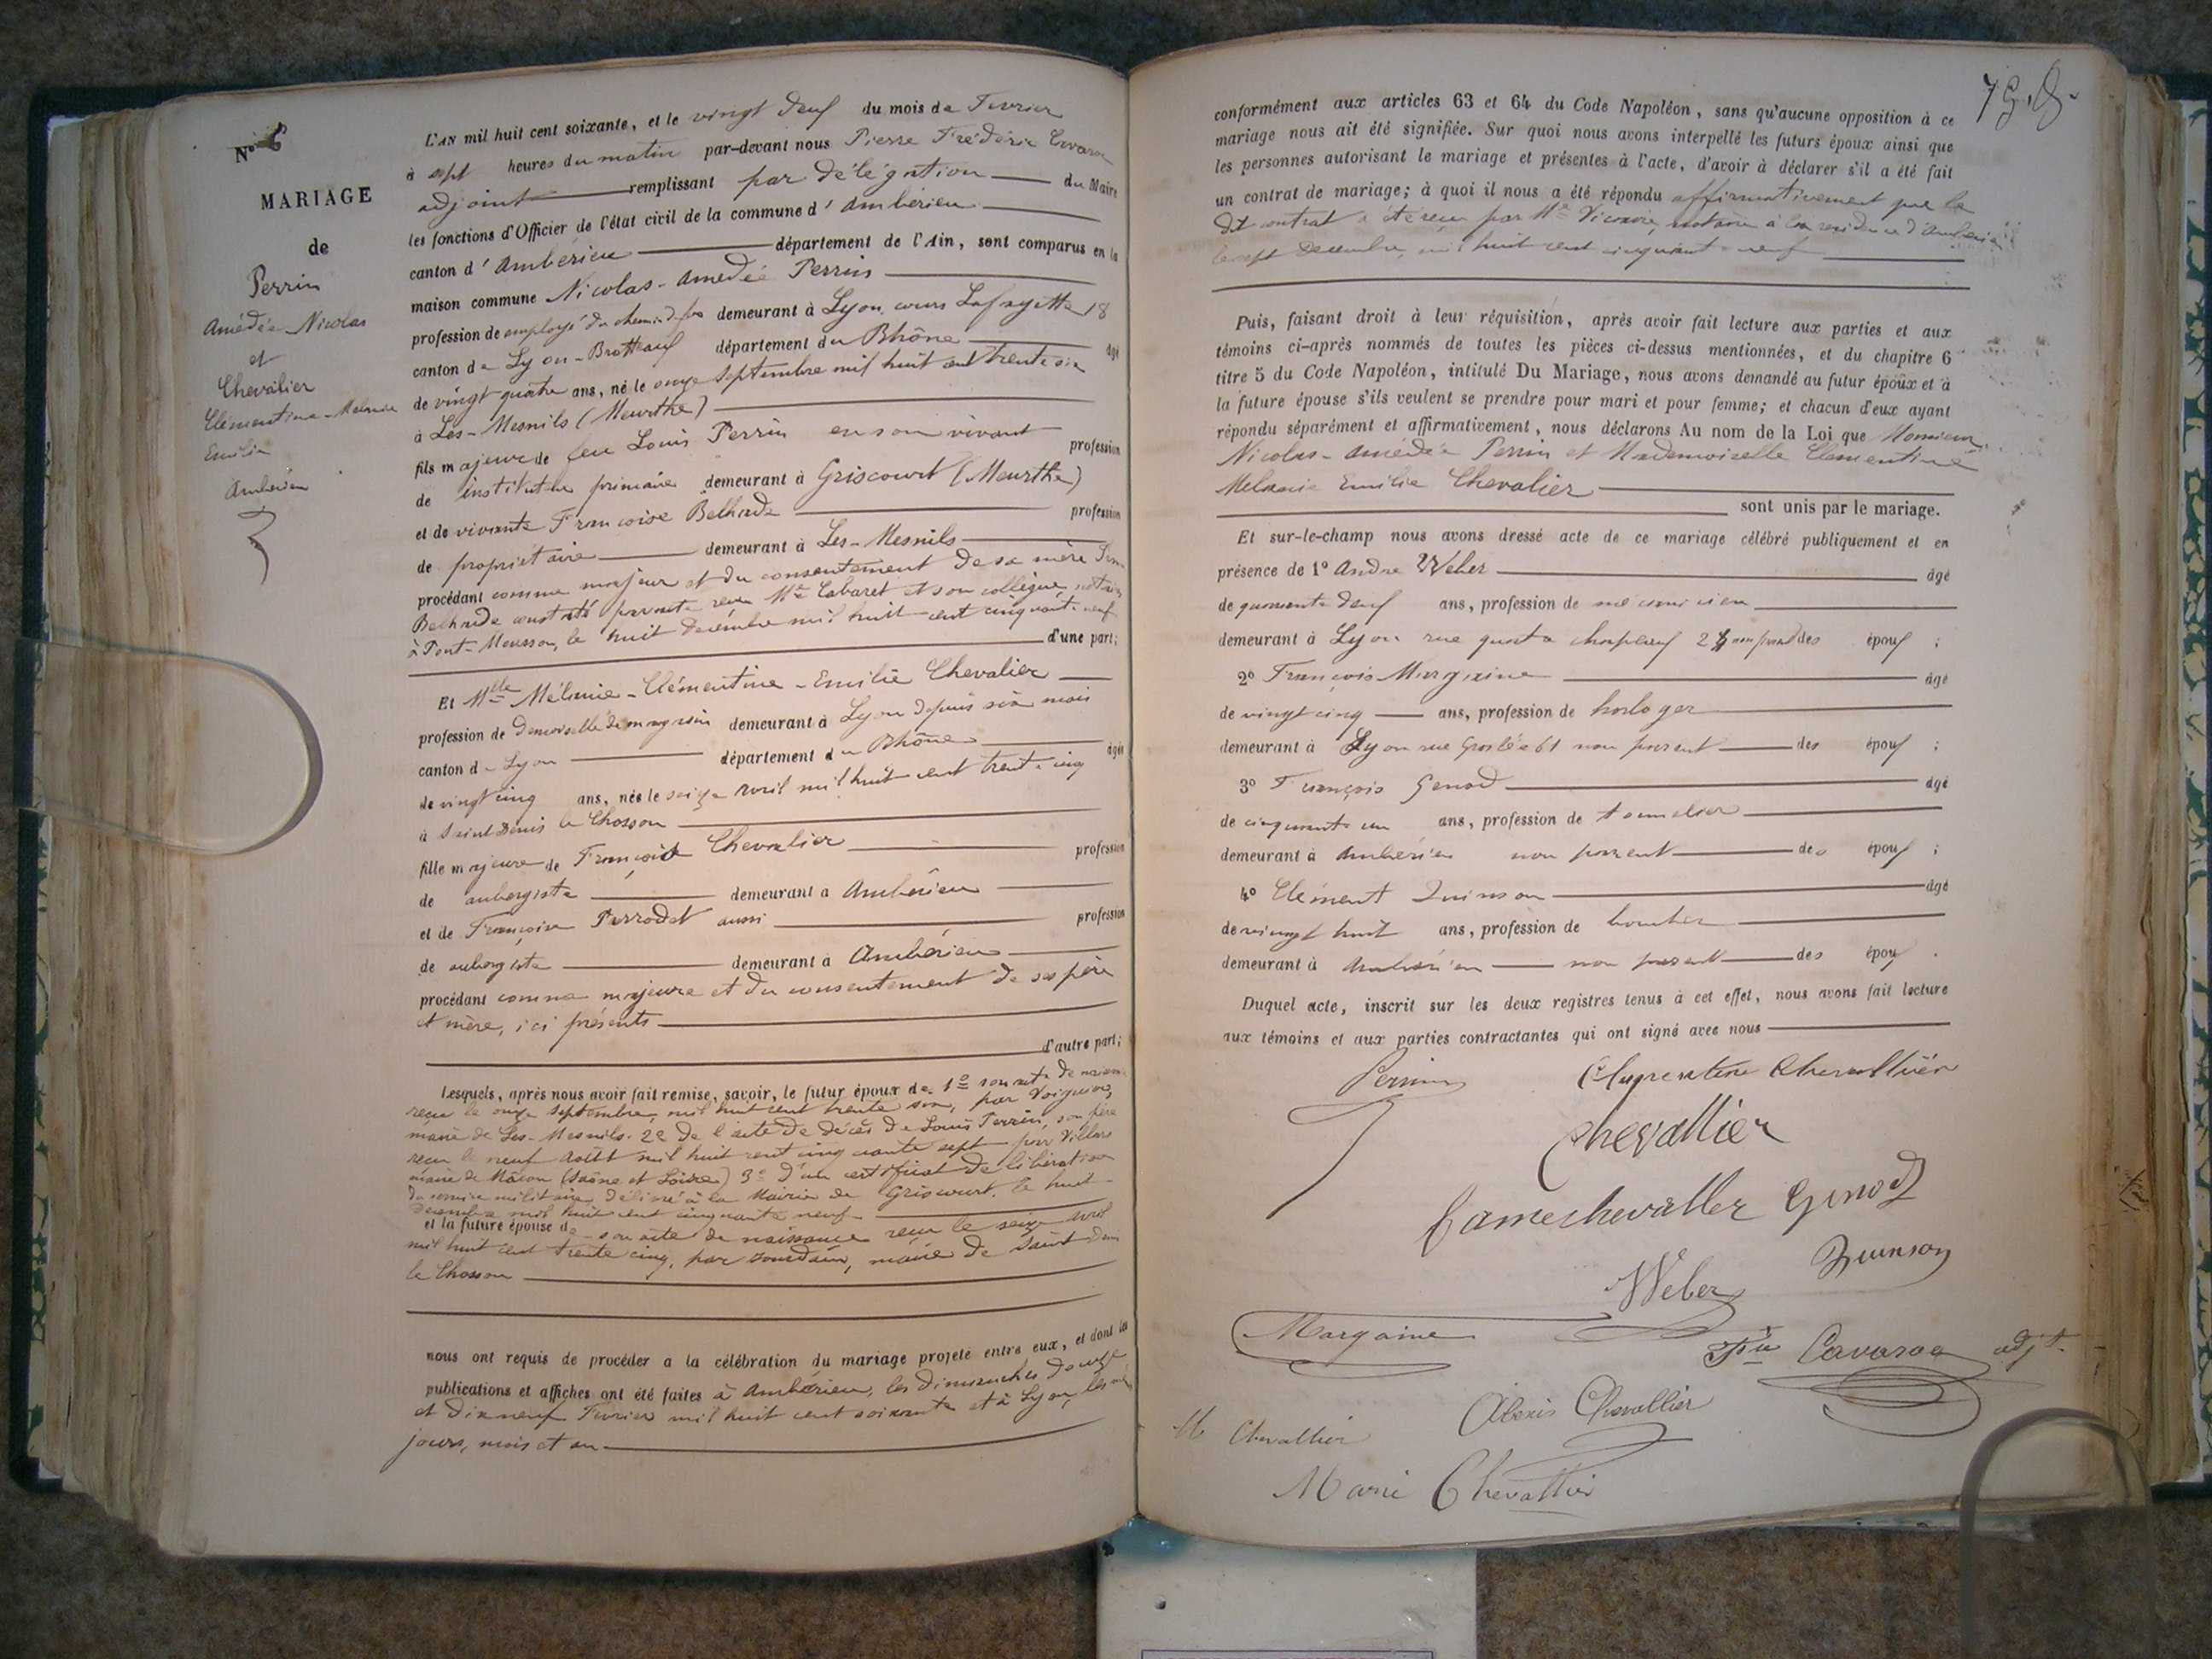 N° 6
MARIAGE
de
Perrin
Amédée-Nicolas
et
Chevalier
Clémentine-Mélanie
Emilie
Ambérieu
L'AN mil huit cent soixante, et le vingt deux du mois de Fevrier
à sept heures du matin par-devant nous Pierre Frédéric
adjoint remplissant par délégation du Maire
les fonctions d'Officier de l'état civil de la commune d'Ambérieu
canton d'Ambérieu département de l'Ain, sont comparus en la
maison commune Nicolas-Amédée Perrin
profession de employé du chemin de fer demeurant à Lyon, cours Lafayette 18
canton de Lyon-Brotteaux département du Rhône âgé
de vingt quatre ans, né le onze Septembre mil huit cent trente six
à Les-Mesnils (Meurthe)
fils majeur de feu Louis Perrin en son vivant profession
de instituteur primaire demeurant à Griscourt (Meurthe)
et de vivante Françoise Belhade profession
de propriétaire demeurant à Les-Mesnils
procédant comme majeur et du consentement de sa mère
Belhade constaté par acte reçu Me Cabaret et son collègue, notaires
à Pont-Mousson, le huit décembre mil huit cent cinquante neuf
d'une part;
Et Mlle Mélanie-Clémentine-Emilie Chevalier
profession de Demoiselle de magasin demeurant à Lyon depuis six mois
canton de Lyon département du Rhône âgée
de vingt cinq ans, née le seize Avril mil huit cent trente cinq
à Saint Denis le Chosson
fille majeure de François Chevalier profession
de aubergiste demeurant à Ambérieu
et de Françoise Perrodet aussi profession
de aubergiste demeurant à Ambérieu
procédant comme majeure et du consentement de ses père
et mère, ici présents
d'autre part;
Lesquels, après nous avoir fait remise, savoir, le futur époux de 1° son acte de naissance
reçu le onze Septembre mil huit cent trente six, par
maire de Les-Mesnils. 2° de l'acte de décès de Louis Perrin, son père
reçu le neuf Août mil huit cent cinquante sept par
maire de Mâcon (Saône et Loire) 3° d'un certificat de libération
du service militaire délivré à la Mairie de Griscourt, le huit
décembre mil huit cent cinquante neuf
et la future épouse de son acte de naissance reçu le seize avril
mil huit cent trente cinq, par Jourdain, maire de Saint Denis
le Chosson
nous ont requis de procéder à la célébration du mariage projeté entre eux, et dont les
publications et affiches ont été faites à Ambérieu, les dimanches douze
et dix neuf Fevrier mil huit cent soixante et à Lyon, les
jours, mois et an
conformément aux articles 63 et 64 du Code Napoléon, sans qu'aucune opposition à ce
mariage nous ait été signifiée. Sur quoi nous avons interpellé les futurs époux ainsi que
les personnes autorisant le mariage et présentes à l'acte, d'avoir à déclarer s'il a été fait
un contrat de mariage; à quoi il nous a été répondu affirmativement que le
dit contrat a été reçu par Me notaire à la résidence d'Ambérieu
le sept decembre, mil huit cent cinquante neuf
Puis, faisant droit à leur réquisition, après avoir fait lecture aux parties et aux
témoins ci-après nommés de toutes les pièces ci-dessus mentionnées, et du chapitre 6
titre 5 du Code Napoléon, intitulé Du Mariage, nous avons demandé au futur époux et à
la future épouse s'ils veulent se prendre pour mari et pour femme; et chacun d'eux ayant
répondu séparément et affirmativement, nous déclarons Au nom de la Loi que Monsieur
Nicolas-Amédée Perrin et Mademoiselle Clémentine
Mélanie Emilie Chevalier
sont unis par le mariage.
Et sur-le-champ nous avons dressé acte de ce mariage célébré publiquement et en
présence de 1° André Weber âgé
de quarante deux ans, profession de mécanicien
demeurant à Lyon rue quatre chapeaux 2 non parent des époux;
2° François Margaine âgé
de vingt cinq ans, profession de horloger
demeurant à Lyon rue Grolée 61 non parent des époux;
3° François Genod âgé
de cinquante un ans, profession de tonnelier
demeurant à Ambérieu non parent des époux;
4° Clément Quinson âgé
de vingt huit ans, profession de boucher
demeurant à Ambérieu non parent des époux.
Duquel acte, inscrit sur les deux registres tenus à cet effet, nous avons fait lecture
aux témoins et aux parties contractantes qui ont signé avec nous
Perrin
Clementine Chevallier
Chevallier
fame chevallier Genod
Weber
Quinson
Margaine
Cavaroc adjt.
Alexis Chevallier
M Chevallier
Marie Chevallier